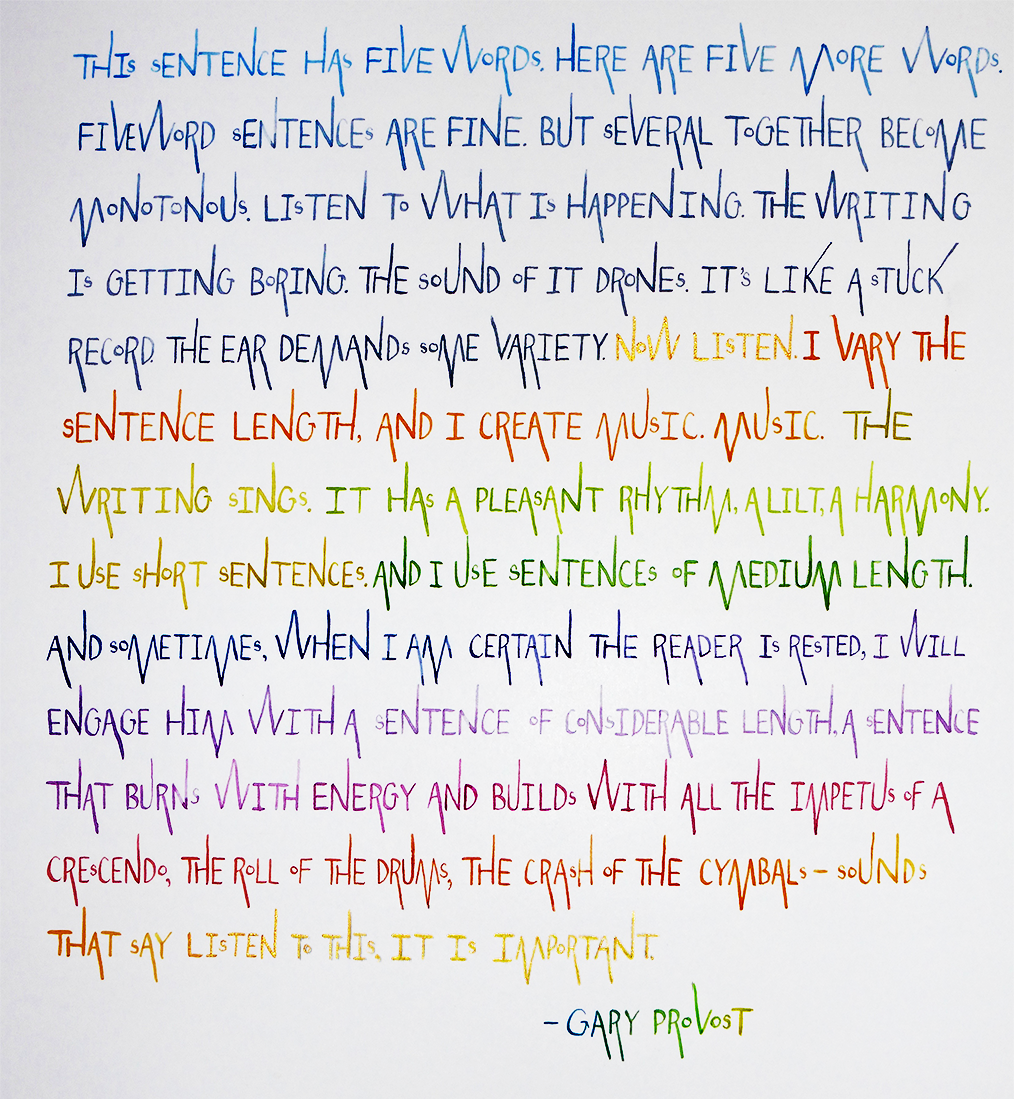 THIS SENTENCE HAS FIVE WORDS. HERE ARE FIVE MORE WORDS.
FIVEWORD SENTENCES ARE FINE. BUT SEVERAL TOGETHER BECOME
MONOTONOUS. LISTEN TO WHAT IS HAPPENING. THE WRITING
IS GETTING BORING. THE SOUND OF IT DRONES. IT'S LIKE A STUCK
RECORD. THE EAR DEMANDS SOME VARIETY. NOW LISTEN. I VARY THE
SENTENCE LENGTH, AND I CREATE MUSIC. MUSIC. THE
WRITING SINGS. IT HAS A PLEASANT RHYTHM, A LILT, A HARMONY.
I USE SHORT SENTENCES. AND I USE SENTENCES OF MEDIUM LENGTH.
AND SOMETIMES, WHEN I AM CERTAIN THE READER IS RESTED, I WILL
ENGAGE HIM WITH A SENTENCE OF CONSIDERABLE LENGTH, A SENTENCE
THAT BURNS WITH ENERGY AND BUILDS WITH ALL THE IMPETUS OF A
CRESCENDO, THE ROLL OF THE DRUMS, THE CRASH OF THE CYMBALS – SOUNDS
THAT SAY LISTEN TO THIS, IT IS IMPORTANT.
– GARY PROVOST